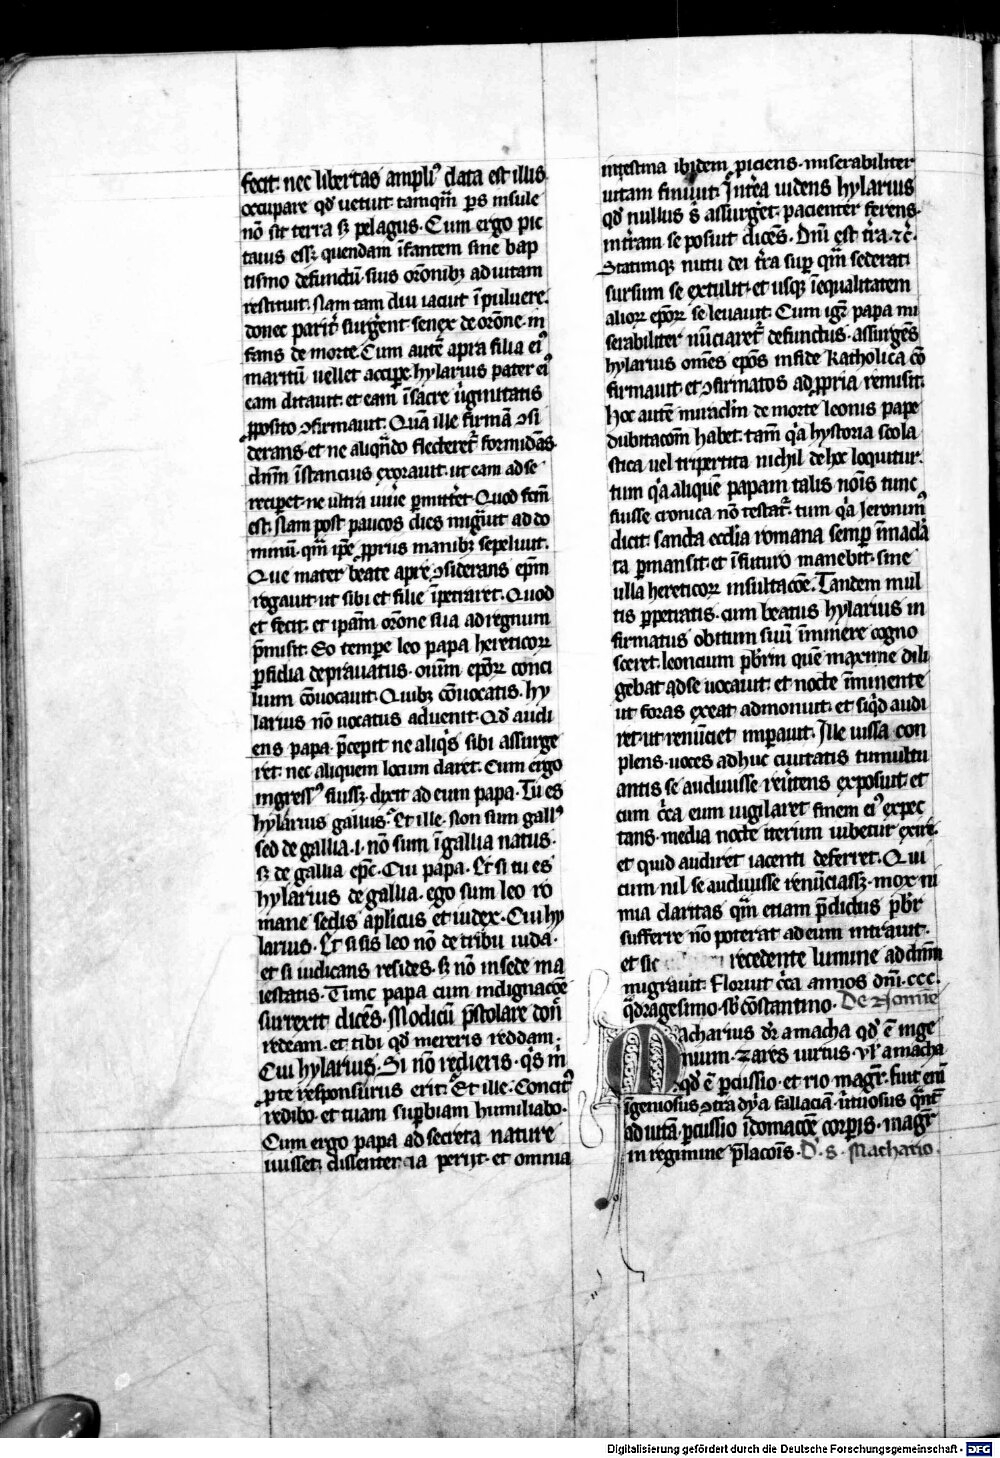 fecit. nec libertas ampliꝰ data est illis
occupare qd̓ uetuit. tamqm̄ ps̄ insule
nō sit terra sꝫ pelagus. Cum ergo pic
tauis esꝫ quendam īfantem sine bap
tismo defunctū suis orōnibꝫ ad uitam
restituit. Nam tam diu iacuit ī puluere.
donec parit̓ surgent senex de orōne. in
fans de morte. Cum autē apra filia eiꝰ
maritū uellet accipe. hylarius pater eiꝰ
eam ditauit. et eam ī sacre uirginitatis
ꝓposito ꝯfirmauit. Quā ille firmā ꝯsi
derans. et ne aliqn̄do flecteret̉ formidās.
dn̄m īstancius exorauit. ut eam ad se
reciꝑet. ne ultra uiuere ꝑmittet. Quod fc̄m
est. Nam post paucos dies migͣuit ad do
minū. qm̄ ip̄e ꝓpriis manibꝫ sepeliuit.
Que mater beate apre ꝯsiderans ep̄m
rogauit ut sibi et filie īpetraret. Quod
et fecit. et ip̄am orōne sua ad regnum
p̄misit. Eo tempe leo papa hereticorꝝ
ꝑfidia deprauatus. oīum ep̄orꝝ conci
lium cōuocauit. Quibꝫ cōuocatis. hy
larius nō uocatus aduenit. Qd̓ audi
ens papa p̄cepit ne aliqͥs sibi assurge
ret. nec aliquem locum daret. Cum ergo
ingressꝰ fuissꝫ. dixit ad eum papa. Tu es
hylarius gallus. Et ille. Non sum gallꝰ
sed de gallia. i. nō sum ī gallia natus.
sꝫ de gallia ep̄c. Cui papa. Et si tu es
hylarius de gallia. ego sum leo ro
mane sedis aplicus et iudex. Cui hy
larius. Et si sis leo nō de tribu iuda.
et si iudicans resides. sꝫ nō in sede ma
iestatis. Tunc papa cum indignacōe
surrexit dicēs. Modicū p̄stolare don̄
redeam. et tibi qd̓ mereris reddam.
Cui hylarius. Si nō redieris. qͥs m̄
ꝓ te responsurus erit. Et ille. Concitꝰ
redibo. et tuam suꝑbiam humiliabo.
Cum ergo papa ad secreta nature
iuisset. dissenteria periit. et omnia
intestina ibidem ꝓiciens. miserabiliter
uitam finiuit. Int̓ea uidens hylarius
qd̓ nullus s̄ assurget. pacienter ferens.
in t̓ram se posuit dicēs. Dn̄i est t̓ra. ⁊c̄.
Statimqꝫ nutu dei t̓ra suꝑ qm̄ sederat
sursum se extulit. et usqꝫ ī equalitatem
aliorꝝ ep̄orꝝ se leuauit. Cum igͥ papa mi
serabiliter nūciaret̉ defunctus. assurgēs
hylarius om̄es ep̄os in fide katholica cō
firmauit. et ꝯfirmatos ad ꝓpria remisit.
Hoc autē miraclm̄ de morte leonis pape
dubitacōm habet. tam qͥa hystoria scola
stica uel tripertita nichil de hoc loquitur.
tum qͥa aliquē papam talis nois tunc
fuisse cronica nō testat̉. tum qͥa Ieronimꝰ
dicit. sancta ecclia romana semꝑ īmacla
ta ꝑmansit. et ī futuro manebit. sine
ulla hereticorꝝ insultacōe. Tandem mul
tis ꝑpetratis. cum beatus hylarius in
firmatus obitum suū īminere cogno
sceret. leoncium pb̄rm quē maxime dili
gebat ad se uocauit. et nocte īminente
ut foras exeat admonuit. et siqͥd audi
ret. ut renūciet imꝑauit. Ille iussa con
plens. uoces ad huc ciuitatis tumultu
antis se audiuisse reu̓tens exposuit. et
cum cͥca eum uigilaret finem eiꝰ expec
tans. media nocte iterum iubetur exire.
et quid audiret iacenti deferret. Qui
cum nil se audiuisse renūciassꝫ. mox ni
mia claritas qm̄ etiam p̄dictus pb̄r
sufferre nō poterat ad eum intrauit.
et sic recedente lumine ad dn̄m
migrauit. Floruit cͥca annos dn̄i. ccc.
qͣdragesimo. sb̓ cōstantino. De nomīe
Macharius dr̄ a macha qd̓ ē inge
nium. ⁊ ares uirtus. ul̓ a macha
qd̓ ē ꝑcussio. et rio magr̄. fuit eni
īgeniosus ꝯtra dya fallaciā. uirtuosus qͣnt̄
ad uitā. ꝑcussio ī domacōe corꝑis. magr̄
in regimine p̄lacois. D̓. s. Machario.
Digitalisierung gefördert durch die Deutsche Forschungsgemeinschaft - DFG